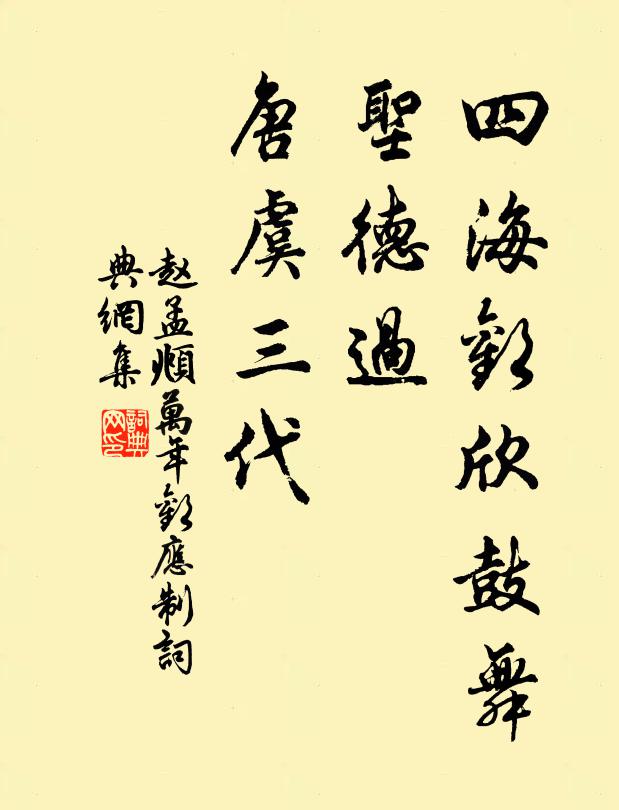 四海歡欣鼓舞
聖德過
唐虞三代
赵孟頫萬年歡應制詞
典網集
詞典網印